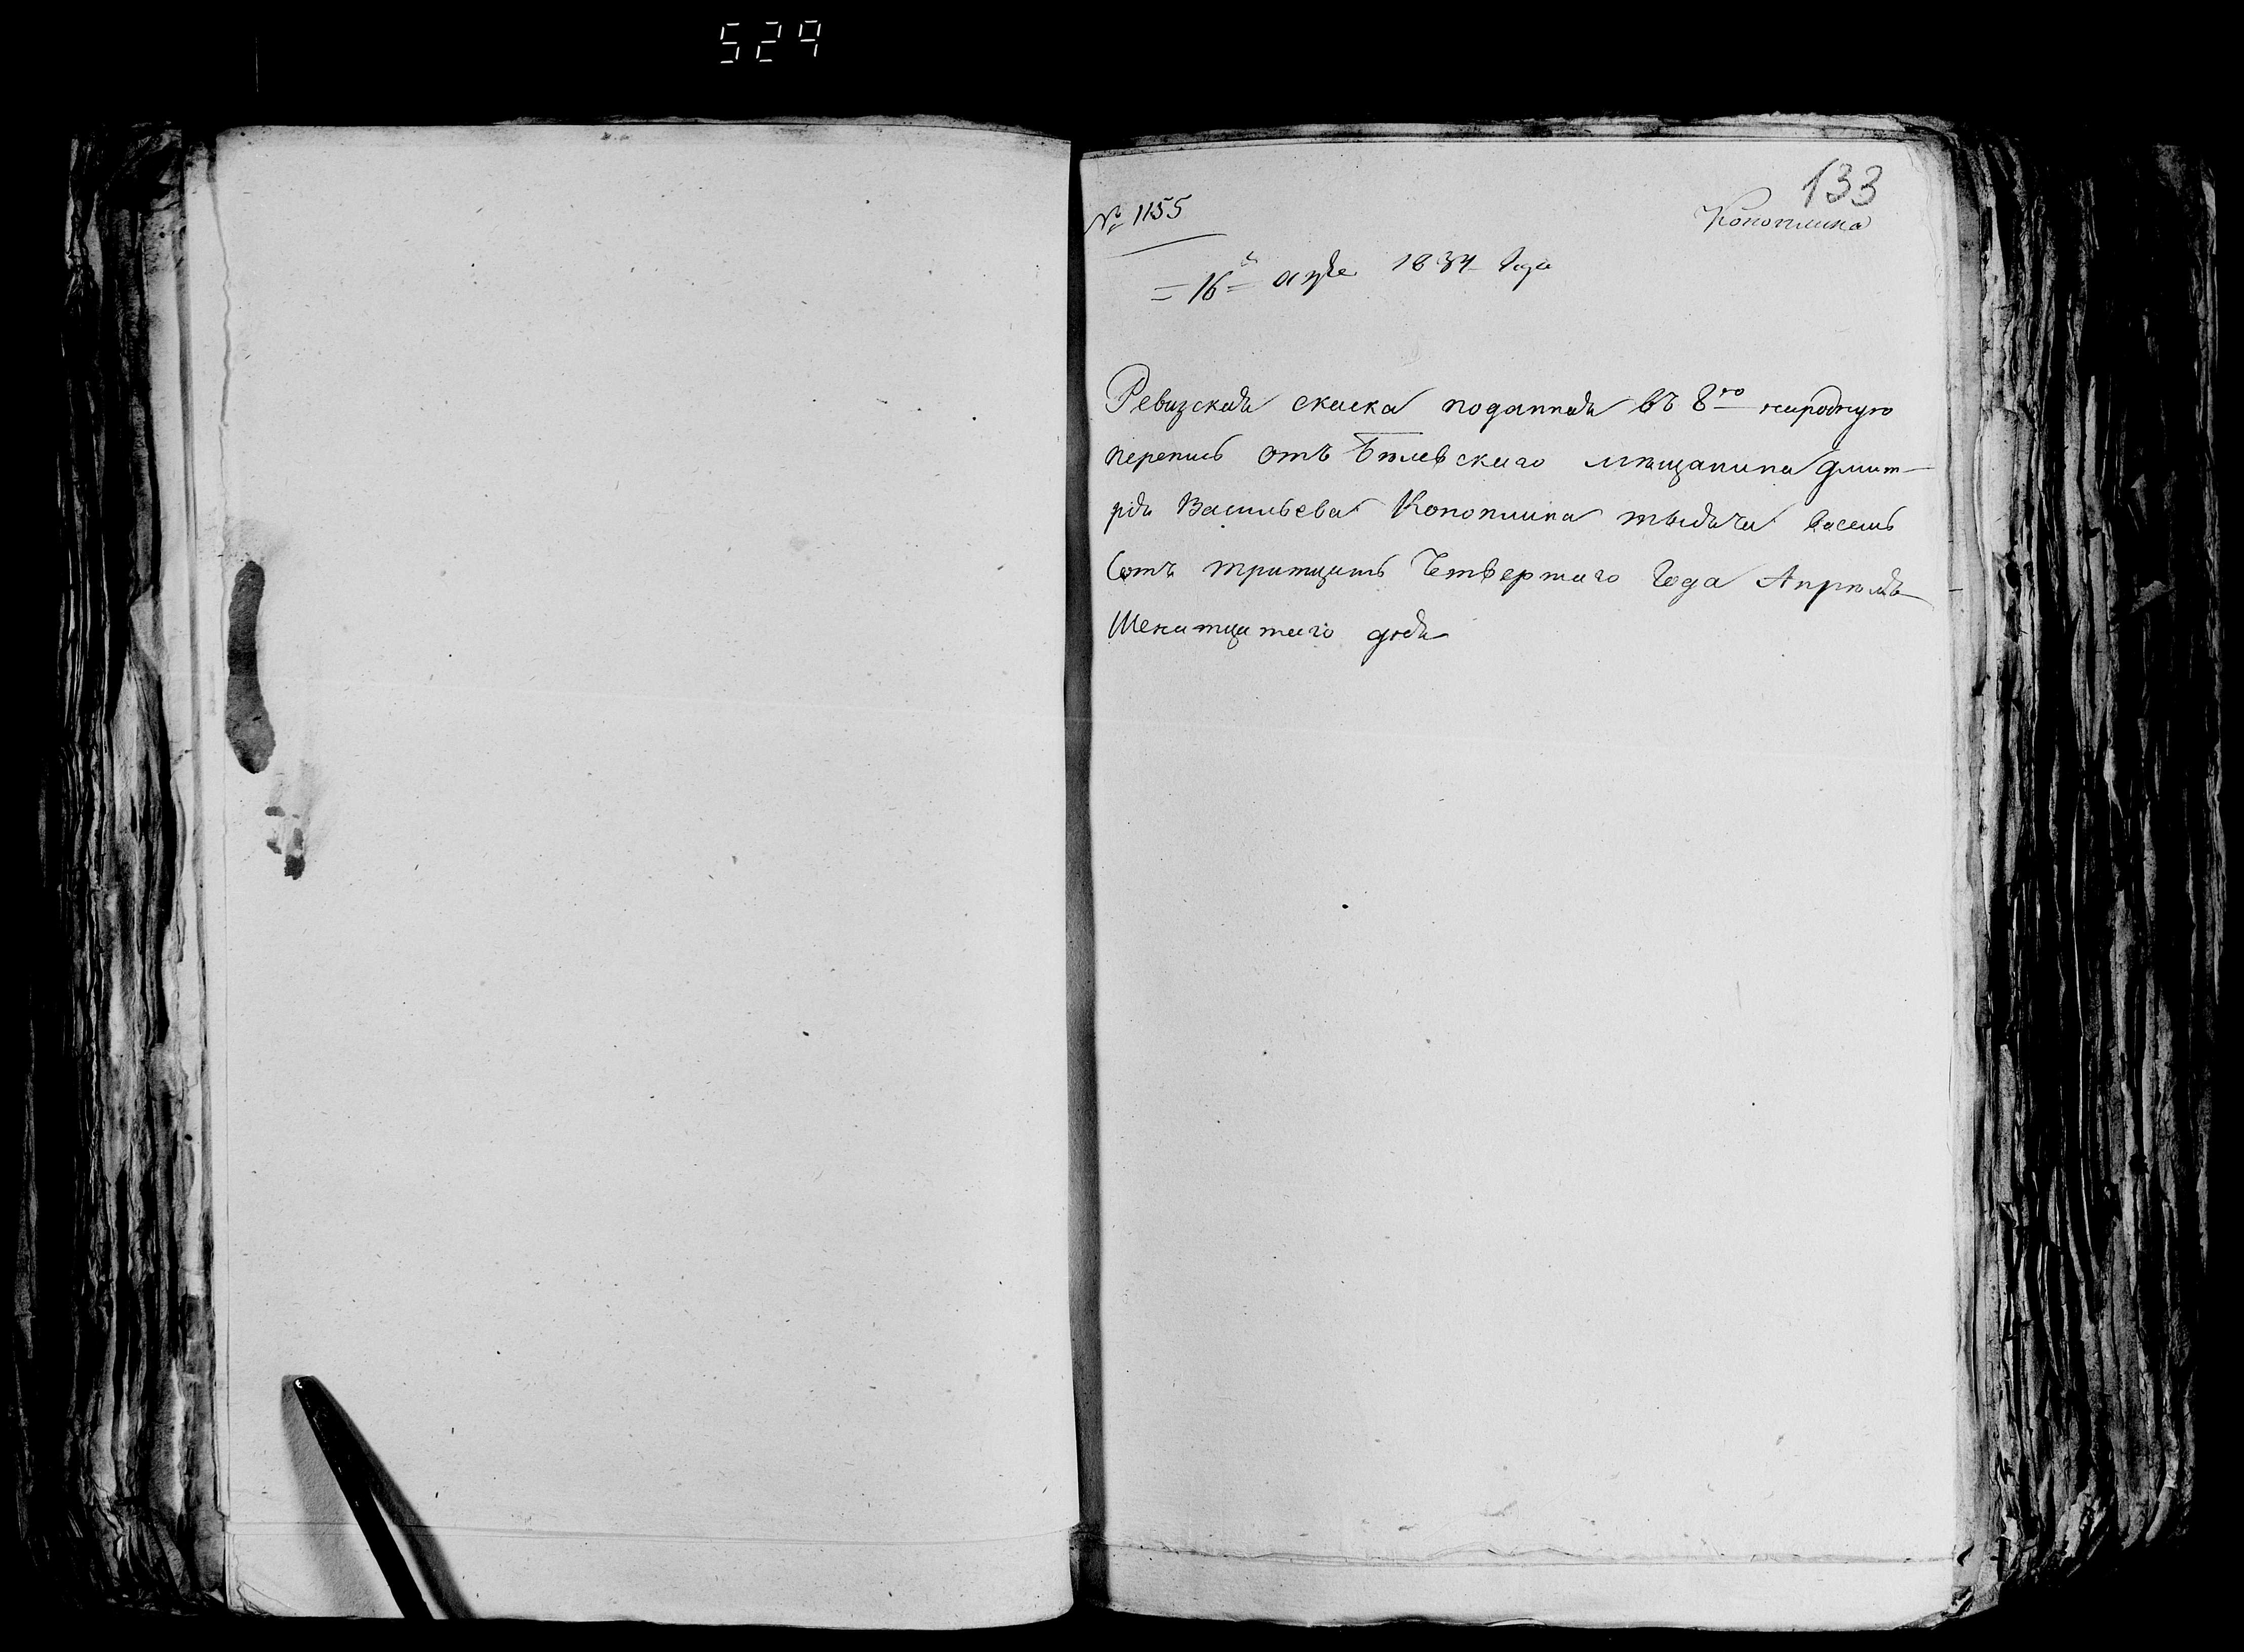 529
133
№ 1155
Коноплина
=16= апре 1834 года
Ревизская скаска поданная въ 8ю народную
перепись отъ Бѣлевскаго мѣщанина Дмит-
рія Васильева Коноплина тысяча васемь
Сотъ тритцать Четвертаго Года Апрѣля
Шенатцатаго дня